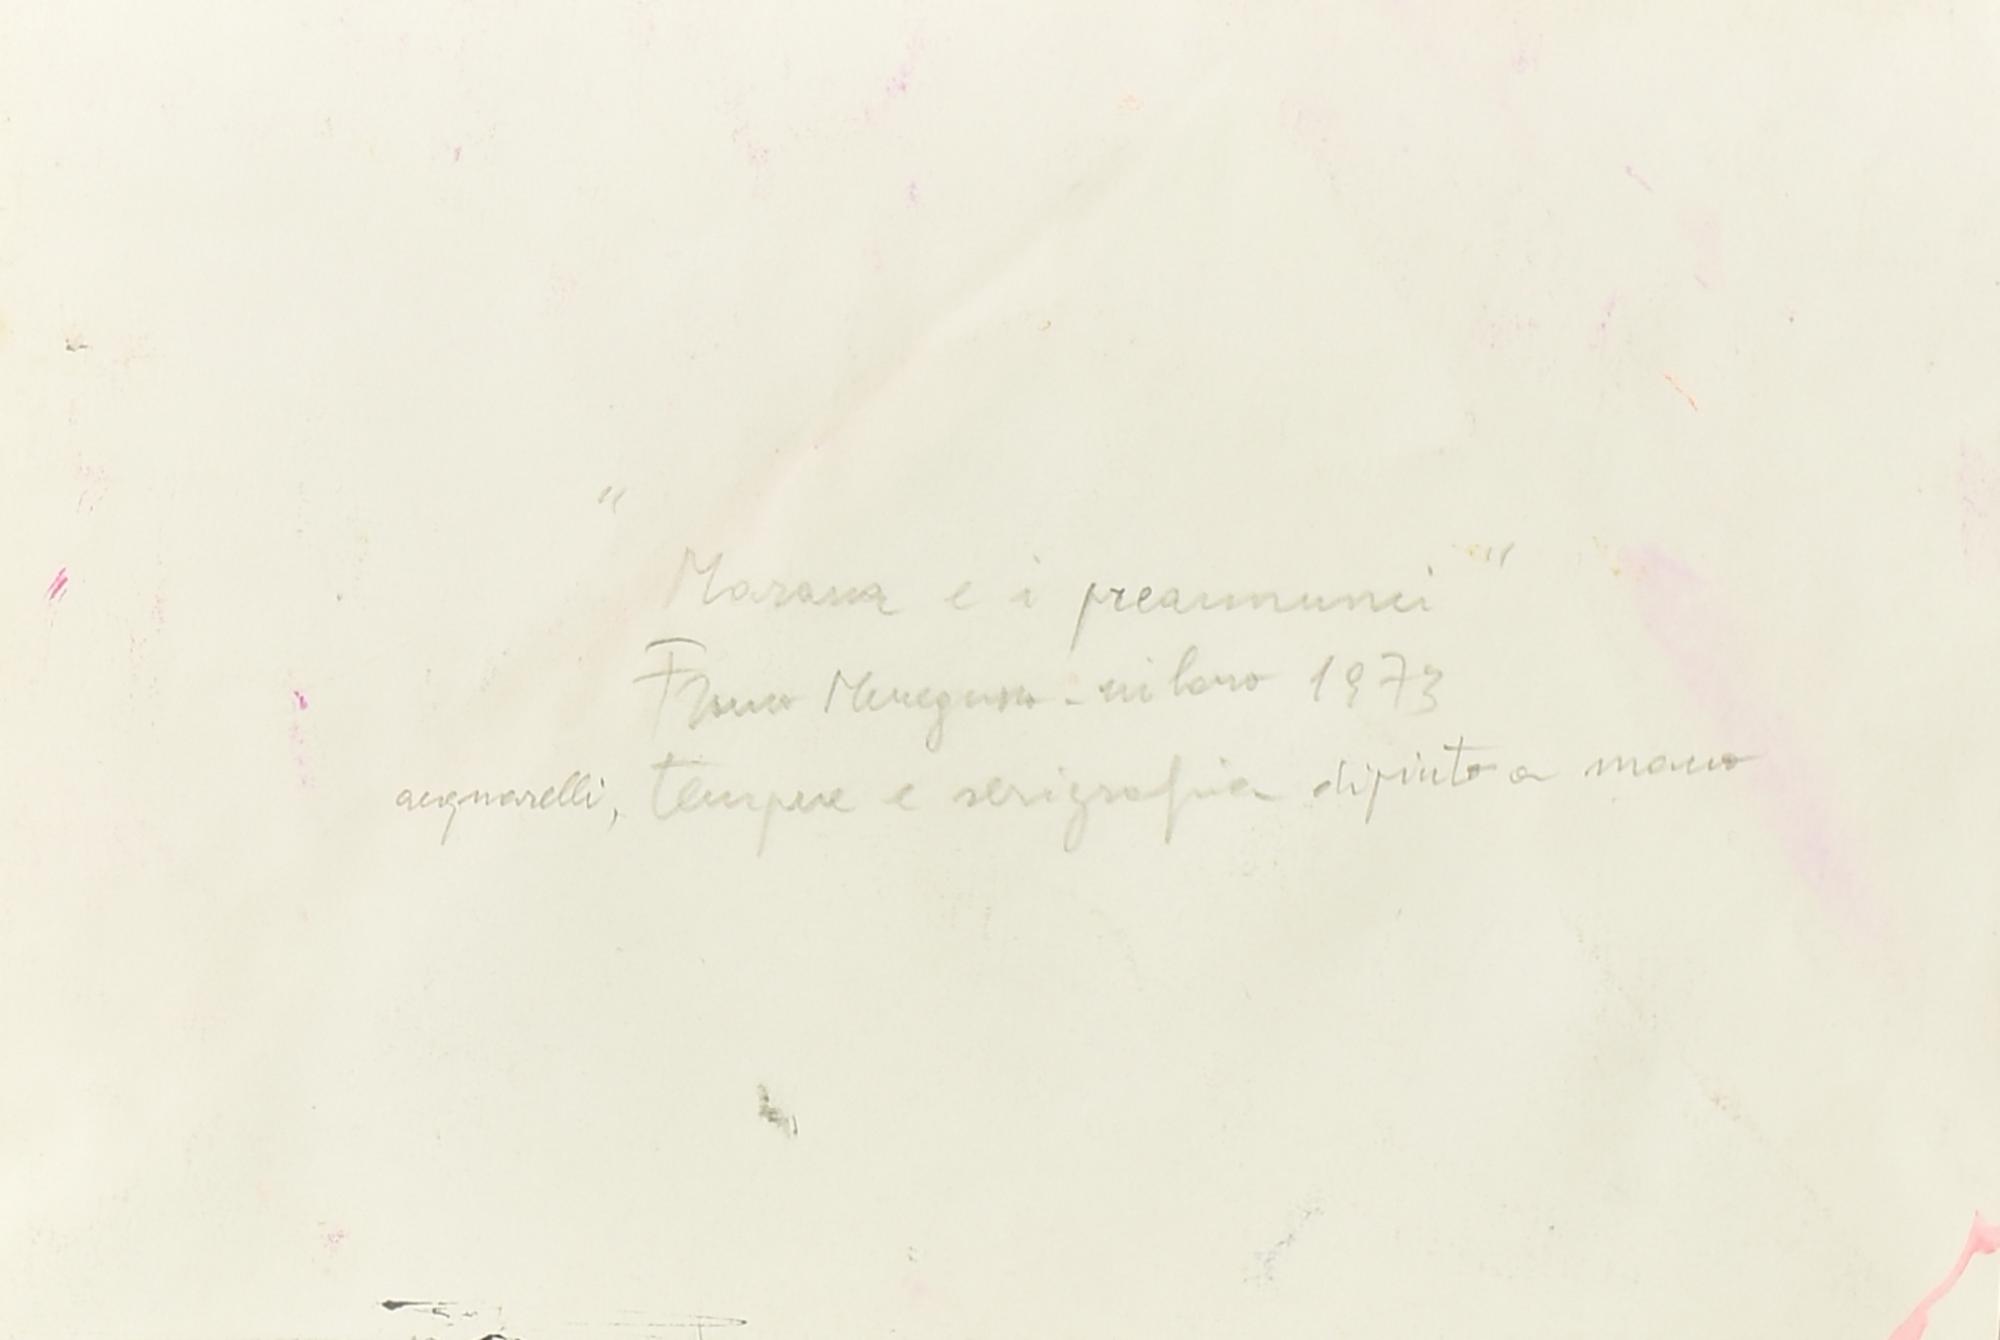 " Marana e i preannunci "
Franco Meneguzzo - milano 1973
acquarelli, tempere e serigrafia dipinto a mano